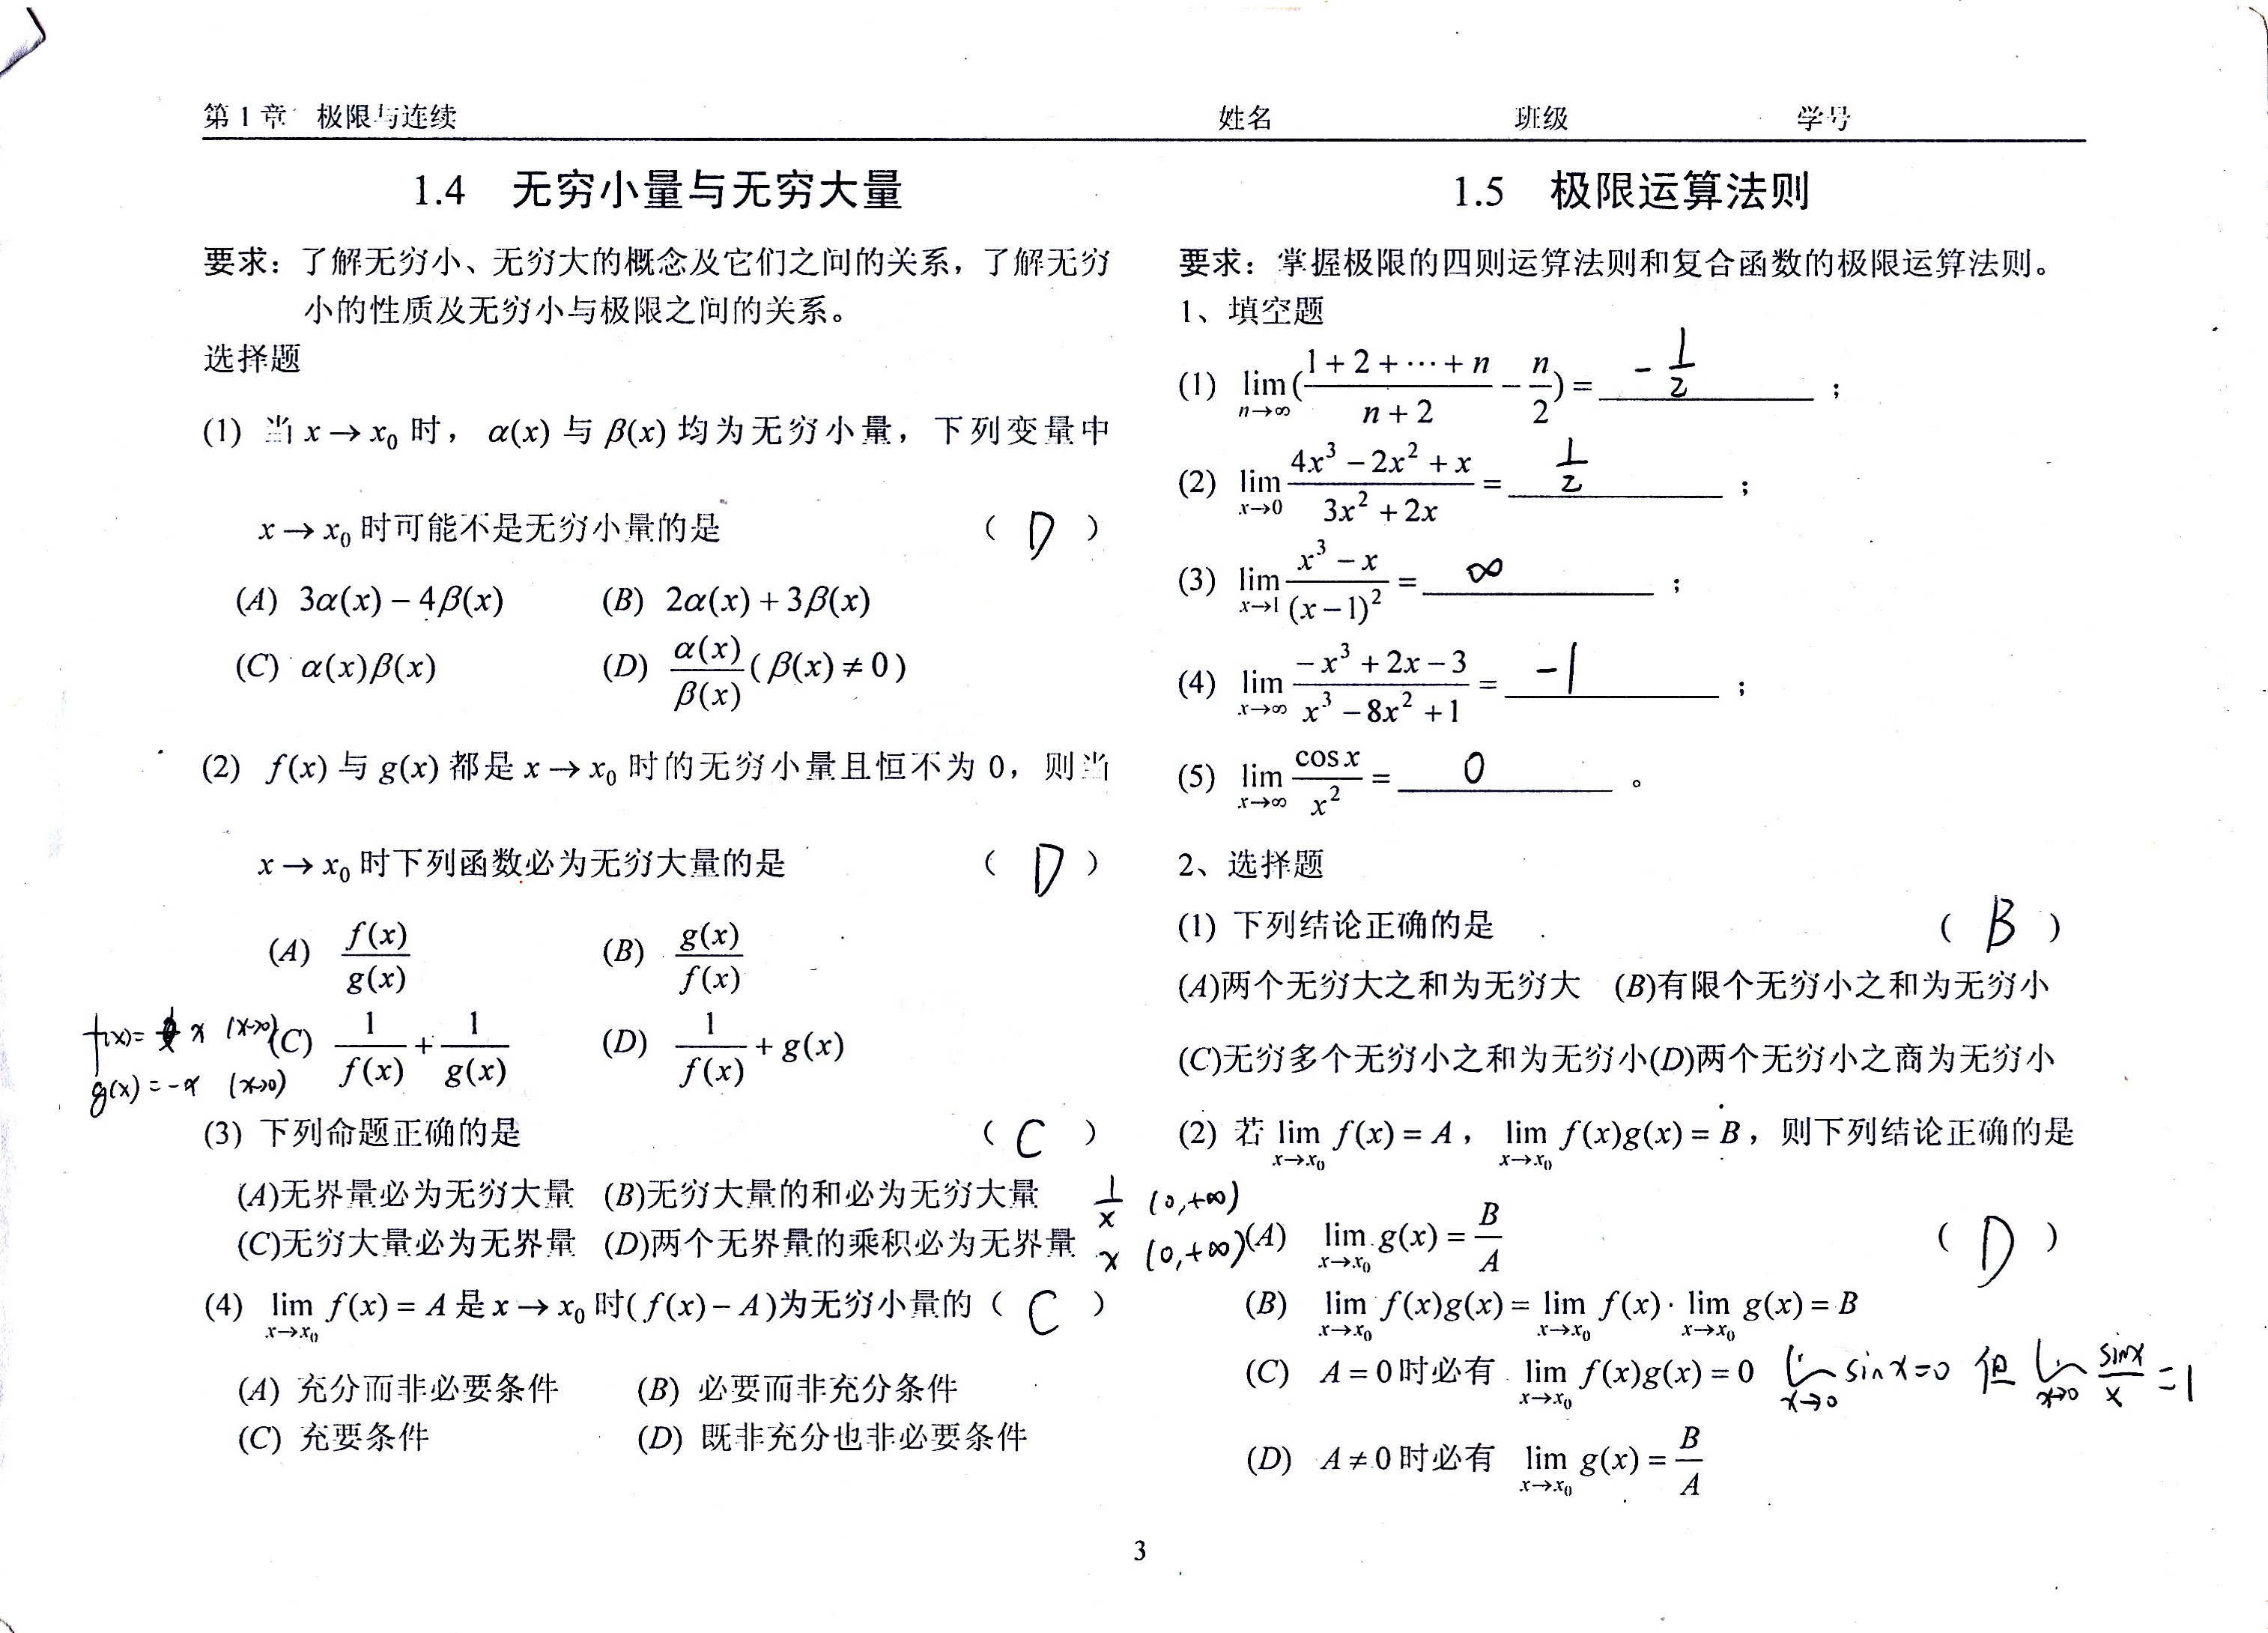 第 1 章 极限与连续 姓名 班级 学号
1.4 无穷小量与无穷大量
要求：了解无穷小、无穷大的概念及它们之间的关系，了解无穷
小的性质及无穷小与极限之间的关系。
选择题
(1) 当 x → x₀ 时， α(x) 与 β(x) 均为无穷小量，下列变量中
x → x₀ 时可能不是无穷小量的是 （ D ）
(A) 3α(x) − 4β(x) (B) 2α(x) + 3β(x)
(C) α(x)β(x) (D) α(x)/β(x) ( β(x) ≠ 0 )
(2) f(x) 与 g(x) 都是 x → x₀ 时的无穷小量且恒不为 0，则当
x → x₀ 时下列函数必为无穷大量的是 （ D ）
(A) f(x)/g(x) (B) g(x)/f(x)
f(x)= x (x→0) (C) 1/f(x) + 1/g(x) (D) 1/f(x) + g(x)
g(x)=-x (x→0)
(3) 下列命题正确的是 （ C ）
(A)无界量必为无穷大量 (B)无穷大量的和必为无穷大量 1/x (0,+∞)
(C)无穷大量必为无界量 (D)两个无界量的乘积必为无界量 x (0,+∞)
(4) lim x→x₀ f(x) = A 是 x → x₀ 时( f(x) − A )为无穷小量的（ C ）
(A) 充分而非必要条件 (B) 必要而非充分条件
(C) 充要条件 (D) 既非充分也非必要条件
1.5 极限运算法则
要求：掌握极限的四则运算法则和复合函数的极限运算法则。
1、填空题
(1) lim n→∞ ((1 + 2 + ⋯ + n)/(n + 2) − n/2) = -1/2 ；
(2) lim x→0 (4x³ − 2x² + x)/(3x² + 2x) = 1/2 ；
(3) lim x→1 (x³ − x)/(x − 1)² = ∞ ；
(4) lim x→∞ (−x³ + 2x − 3)/(x³ − 8x² + 1) = -1 ；
(5) lim x→∞ cos x/x² = 0 。
2、选择题
(1) 下列结论正确的是 （ B ）
(A)两个无穷大之和为无穷大 (B)有限个无穷小之和为无穷小
(C)无穷多个无穷小之和为无穷小(D)两个无穷小之商为无穷小
(2) 若 lim x→x₀ f(x) = A， lim x→x₀ f(x)g(x) = B，则下列结论正确的是
(A) lim x→x₀ g(x) = B/A （ D ）
(B) lim x→x₀ f(x)g(x) = lim x→x₀ f(x) · lim x→x₀ g(x) = B
(C) A = 0 时必有 lim x→x₀ f(x)g(x) = 0 lim x→0 sin x=0 但 lim x→0 sinx/x =1
(D) A ≠ 0 时必有 lim x→x₀ g(x) = B/A
3